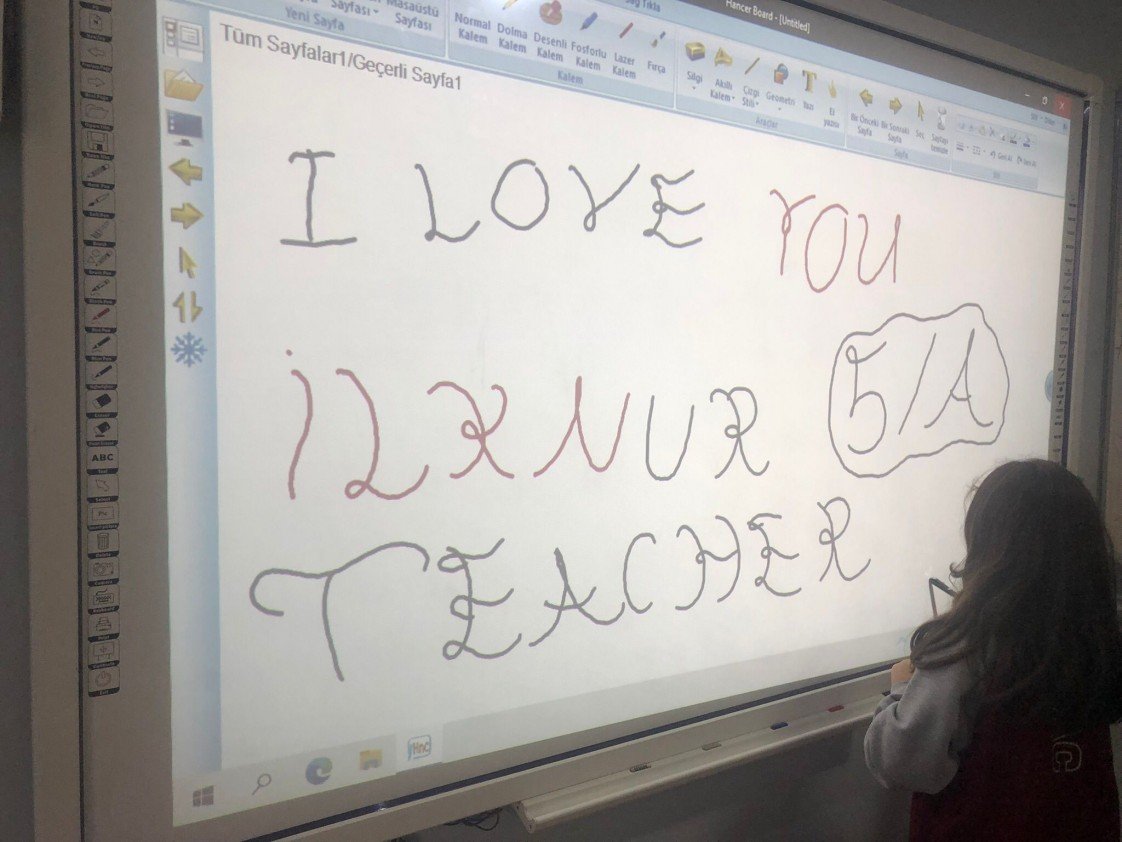 Hancer Board - [Untitled]
Sayfası Masaüstü Sayfası
Yeni Sayfa
Normal Kalem Dolma Kalem Desenli Kalem Fosforlu Kalem Lazer Kalem Fırça
Kalem
Silgi Akıllı Kalem Çizgi Stili Geometri Yazı El yazısı
Araçlar
Bir Önceki Sayfa Bir Sonraki Sayfa Seç Sayfayı temizle
Sayfa
Tüm Sayfalar1/Geçerli Sayfa1
I LOVE YOU
İLKNUR 5/A
TEACHER
ABC